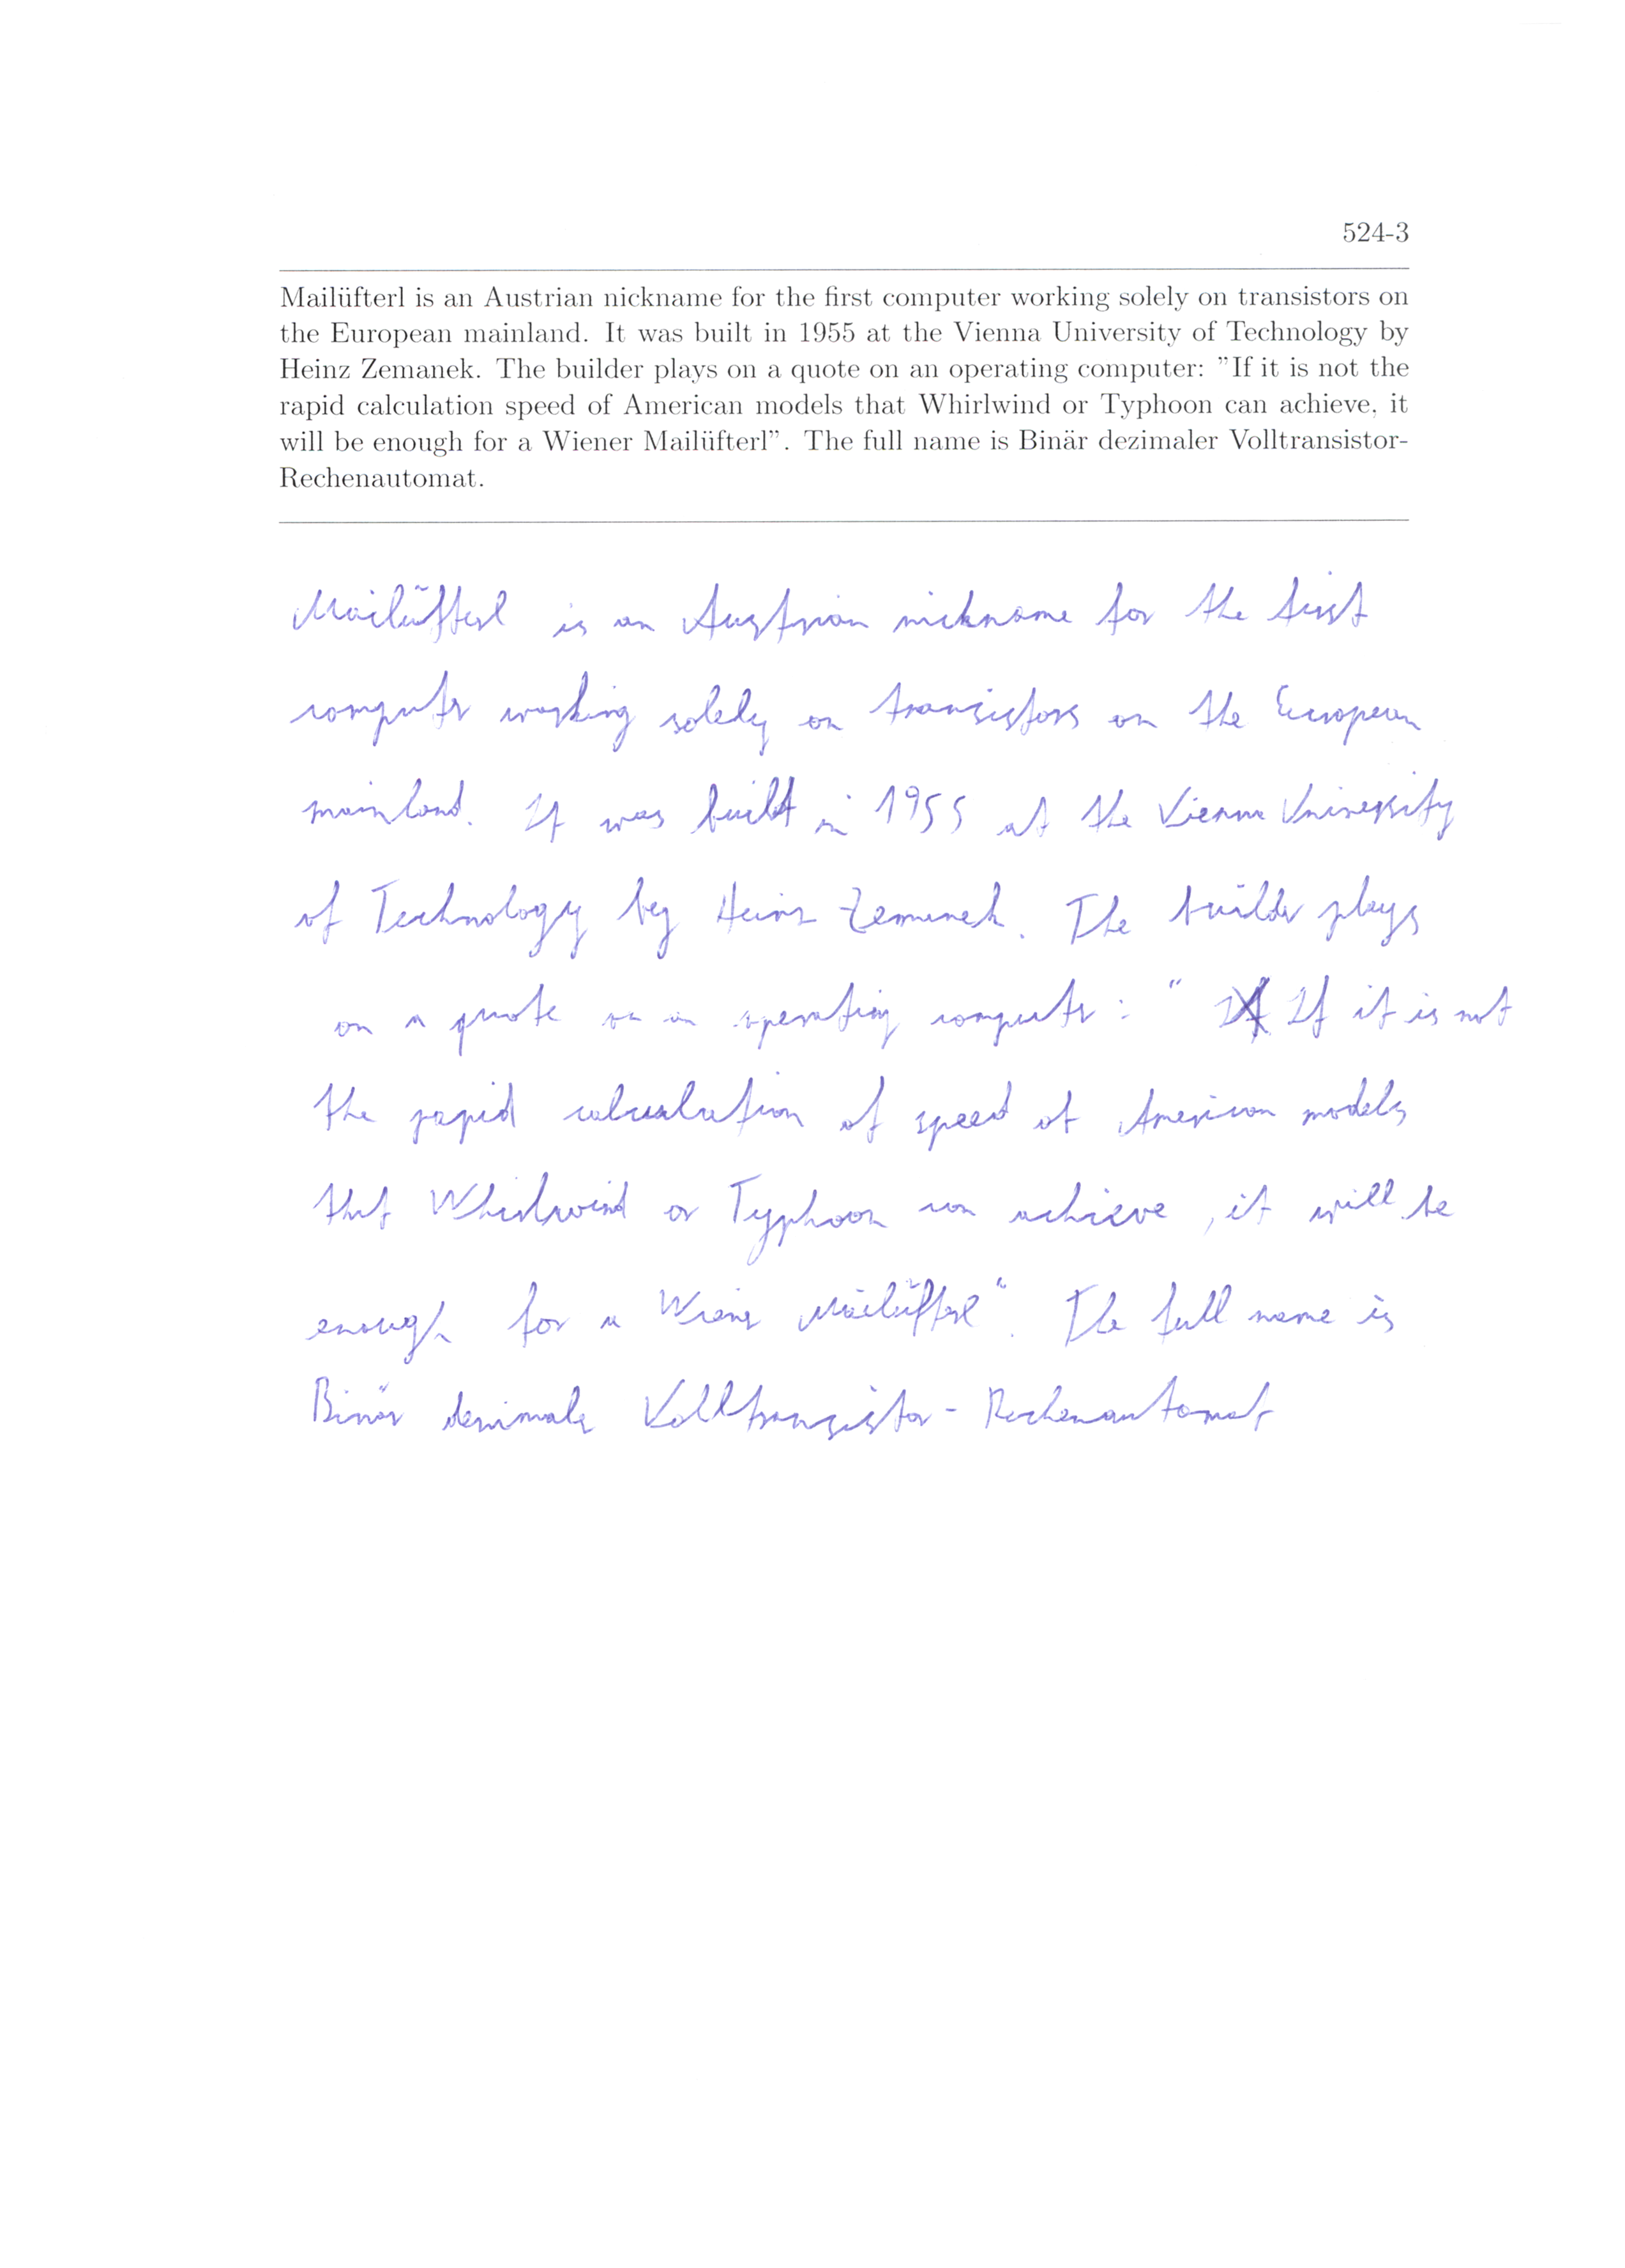 524-3
Mailüfterl is an Austrian nickname for the first computer working solely on transistors on
the European mainland. It was built in 1955 at the Vienna University of Technology by
Heinz Zemanek. The builder plays on a quote on an operating computer: ”If it is not the
rapid calculation speed of American models that Whirlwind or Typhoon can achieve, it
will be enough for a Wiener Mailüfterl”. The full name is Binär dezimaler Volltransistor-
Rechenautomat.
Mailüfterl is an Austrian nickname for the first
computer working solely on transistors on the European
mainland. It was built in 1955 at the Vienna University
of Technology by Heinz Zemanek. The builder plays
on a quote on an operating computer: " If it is not
the rapid calculation of speed of American models
that Whirlwind or Typhoon can achieve, it will be
enough for a Wiener Mailüfterl". The full name is
Binär dezimaler Volltransistor-Rechenautomat